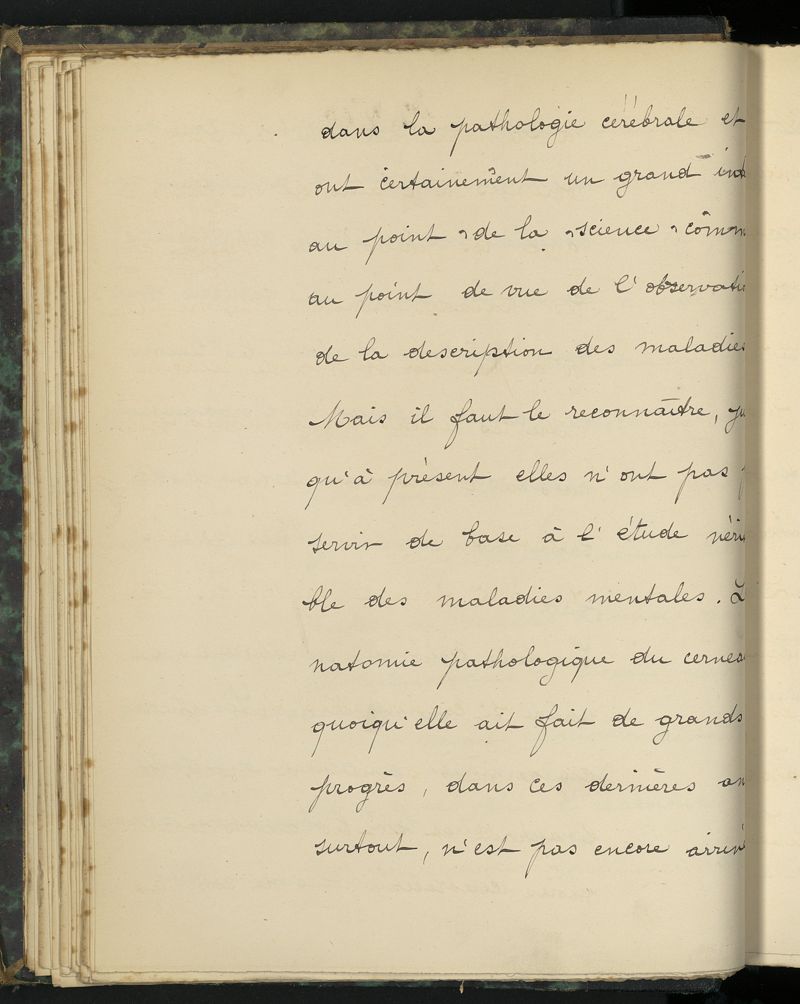 dans la pathologie cérébrale et
ont certainement un grand int
au point de la science comm
au point de vue de l'observati
de la description des maladies
Mais il faut le reconnaître, ju
qu'à présent elles n'ont pas p
servir de base à l'étude véri
ble des maladies mentales. L
natomie pathologique du cervea
quoiqu'elle ait fait de grands
progrès, dans ces dernières an
surtout, n'est pas encore arrivé